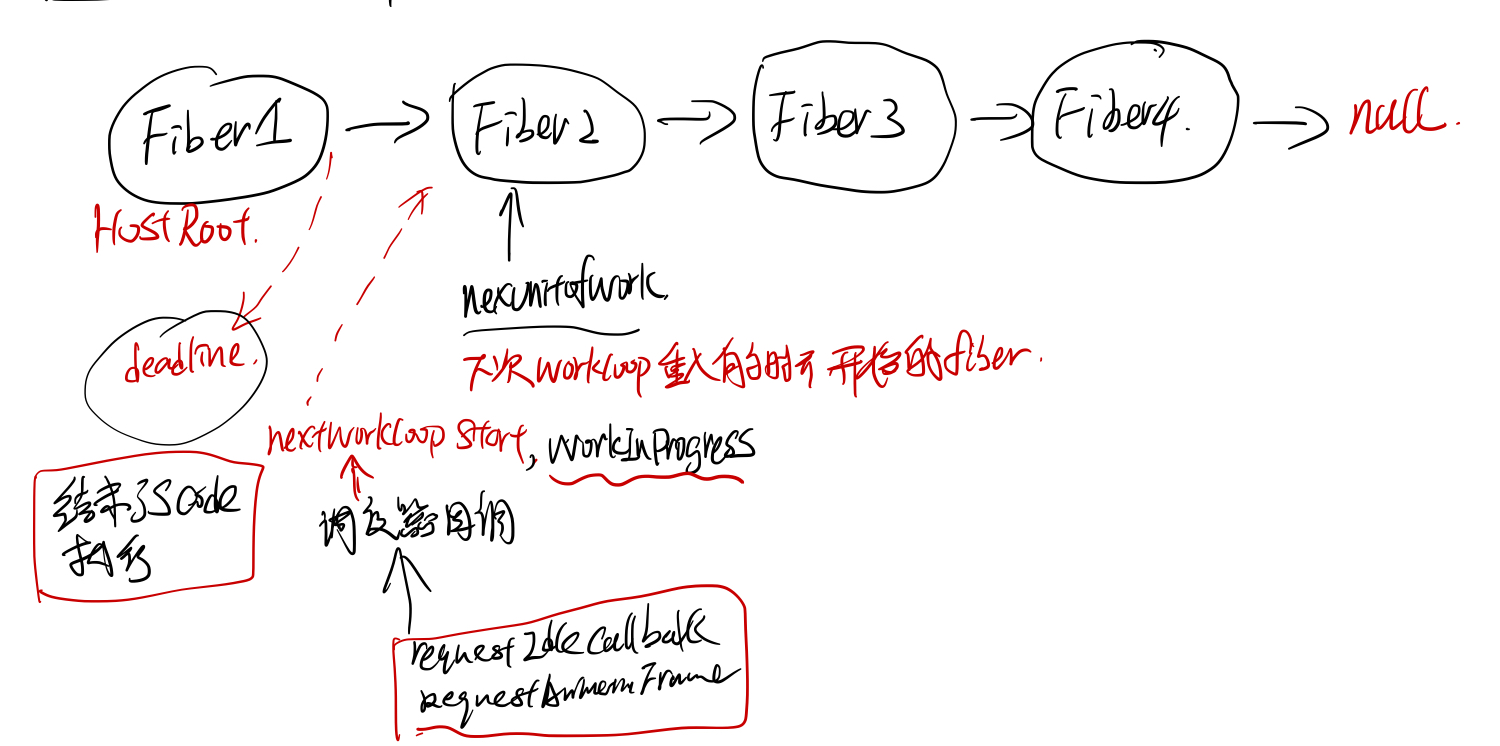 Fiber1
Fiber2
Fiber3
Fiber4.
null.
HostRoot.
nexunitofwork,
deadline.
下次workloop重入的时 开始的fiber.
nextworkloop start, workInProgress
结束了JS code
执行
调度 回调
requestIdleCallback
request Frame